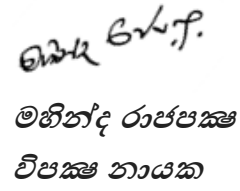 මහින්ද රාජපක්‍ෂ
විපක්‍ෂ නායක